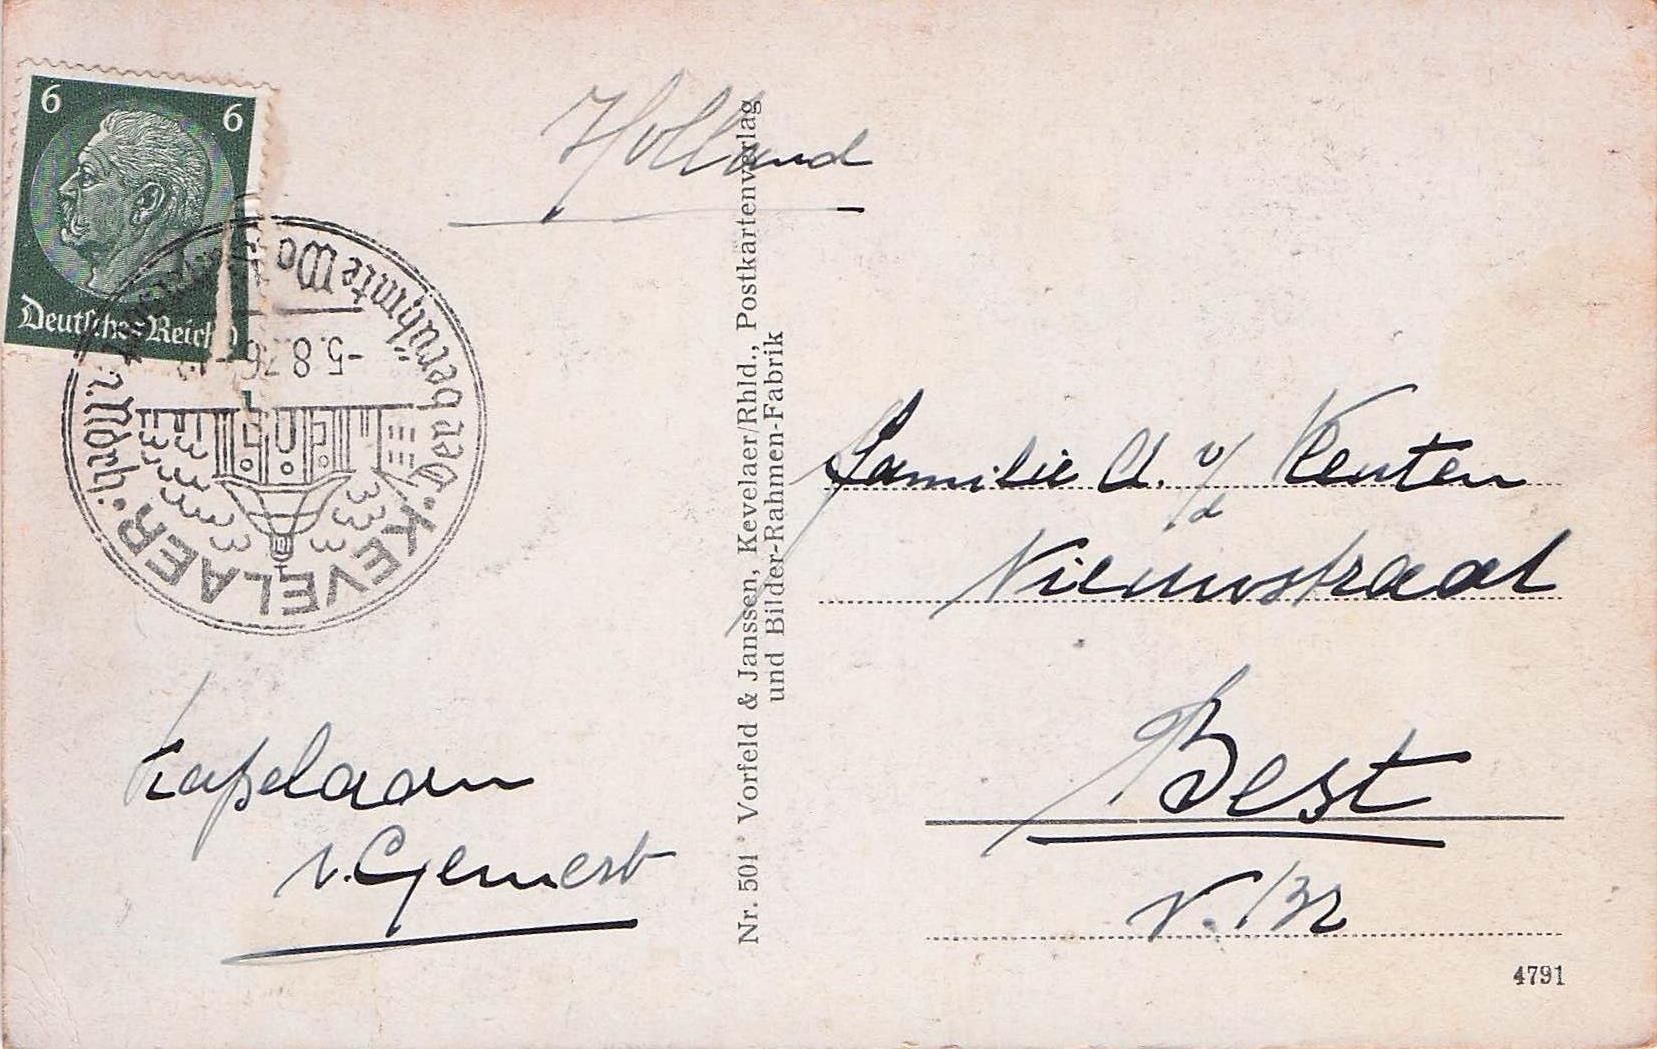 6 6
Deutsches Reich
Holland
Der berühmte Wa
-5.8.36
KEVELAER
Familie A. v/d Kenten
Nieuwstraat
Best
N. Br
Kapelaan
v. Gemert
Nr. 501 * Vorfeld & Janssen, Kevelaer/Rhld., Postkartenverlag
und Bilder-Rahmen-Fabrik
4791